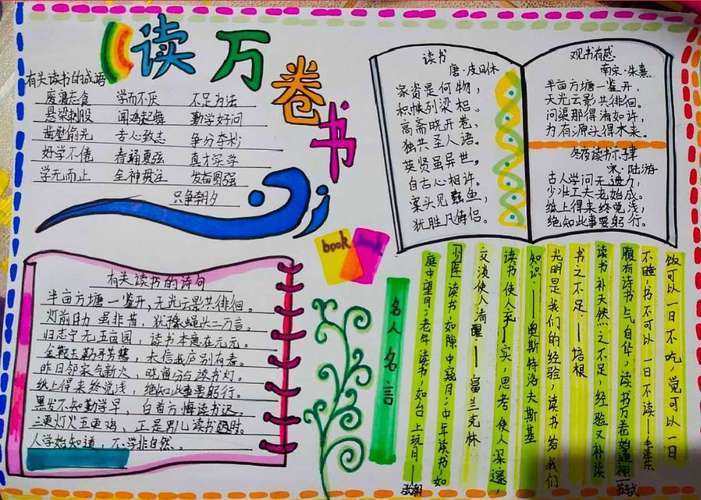 读万卷书
有关读书的成语
废寝忘食 学而不厌 不足为法
悬梁刺股 闻鸡起舞 勤学好问
凿壁偷光 专心致志 争分夺秒
好学不倦 真才实学
学无而止 全神贯注 发愤图强
只争朝夕
读书
唐·皮日休
家资是何物，
积帙列梁梠。
高斋晓开卷，
独共圣人语。
英贤虽异世，
自古心相许。
案头见蠹鱼，
犹胜凡俦侣。
观书有感
南宋·朱熹
半亩方塘一鉴开，
天光云影共徘徊。
问渠那得清如许，
为有源头活水来。
冬夜读书示聿
宋·陆游
古人学问无遗力，
少壮工夫老始成。
纸上得来终觉浅，
绝知此事要躬行。
book
有关读书的诗句
半亩方塘一鉴开，天光云影共徘徊。
灯前目力虽非昔，犹课蝇头二万言，
归志宁无五亩园，读书本意在元元。
昨日邻家乞新火，晓窗分与读书灯。
纸上得来终觉浅，绝知此事要躬行。
黑发不知勤学早，白首方悔读书迟。
三更灯火五更鸡，正是男儿读书时。
人学始知道，不学非自然。
名人名言
饭可以一日不吃，觉可以一日
不睡，书不可以一日不读——毛泽东
腹有诗书气自华，读书万卷始通神——苏轼
读书补天然之不足，经验又补读
书之不足——培根
光明是我们的经验，读书给我们
知识——奥斯特洛夫斯基
读书使人充实，思考使人深邃，
交谈使人清醒——富兰克林
少年读书，如隙中窥月；中年读书，如
庭中望月；老年读书，如台上玩月——张潮